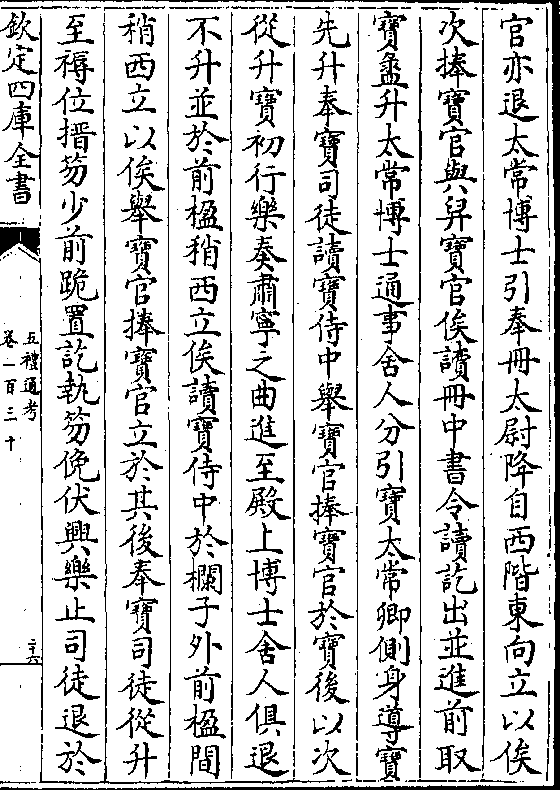 官亦退太常博士引奉冊太尉降自西階東向立以俟
次捧寶官與舁寶官俟讀冊中書令讀訖出並進前取
寶盝升太常博士通事舍人分引寶太常卿側身導寶
先升奉寶司徒讀寶侍中舉寶官捧寶官於寶後以次
從升寶初行樂奏肅寧之曲進至殿上博士舍人俱退
不升並於前楹稍西立俟讀寶侍中於欄子外前楹間
稍西立以俟舉寶官捧寶官立於其後奉寶司徒從升
至褥位搢笏少前跪置訖執笏俛伏興樂止司徒退於
欽定四庫全書
五禮通考
卷一百三十
二六